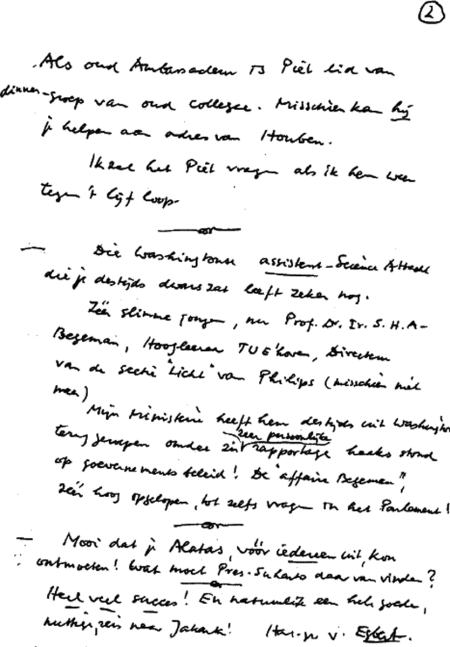 2
Als oud Ambassadeur is Piël lid van
dinner-groep van oud collegae. Misschien kan hij
je helpen aan adres van Houben.
Ik zal het Piël vragen als ik hem weer
tegen 't lijf loop.
— Die Washingtonse assistent-Science Attaché
die je destijds dwars zat leeft zeker nog.
Zéér slimme jongen, nu Prof. Dr. Ir. S.H.A.
Begeman, Hoogleraar TU E'hoven, Directeur
van de sectie "Licht" van Philips (misschien niet
meer)
Mijn Ministerie heeft hem destijds uit Washington
teruggeroepen omdat zijn zeer persoonlijke rapportage haaks stond
op gouvernements beleid! De "affaire Begeman",
zéér hoog opgelopen, tot zelfs vragen in het Parlement!
— Mooi dat je Alatas, vóór iedereen uit, kon
ontmoeten! Wat moet Pres. Suharto daar van vinden?
Heel veel succes! En natuurlijk een hele goede,
nuttige, reis naar Jakarta! Har. gr. v. Egbert.